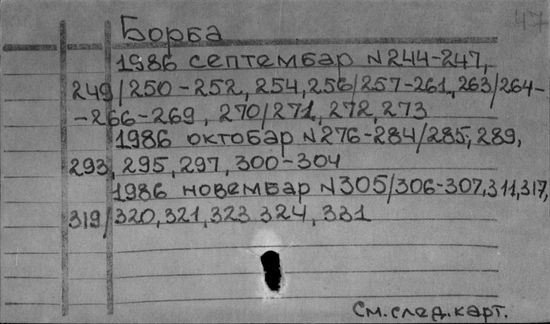 47
Борба
1986 септембар N244-247,
249/250-252, 254, 256/257-261, 263/264-
-266-269, 270/271, 272, 273
1986 октобар N276-284/285, 289,
293, 295, 297, 300-304
1986 новембар N305/306-307, 311, 317,
319/320, 321, 323 324, 331
См. след. карт.